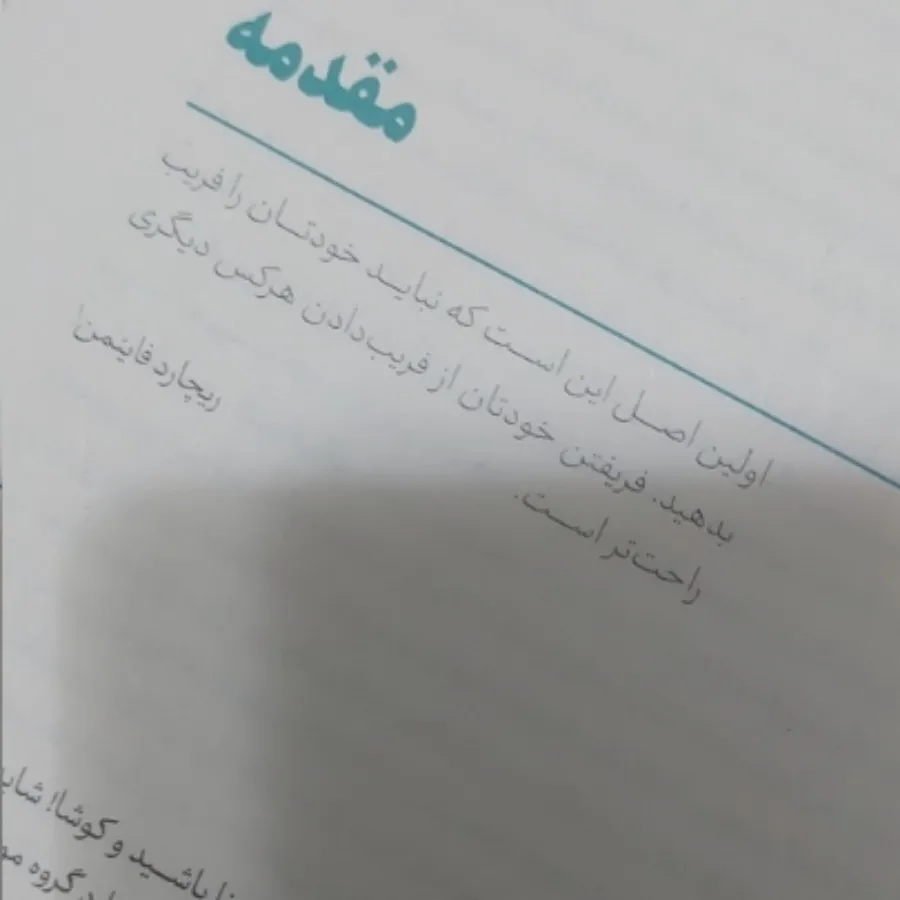 مقدمه
اولین اصل این است که نباید خودتان را فریب
بدهید. فریفتن خودتان از فریب‌دادن هرکس دیگری
راحت‌تر است.
ریچارد فاینمن
باشید و کوشا! شاید
گروه